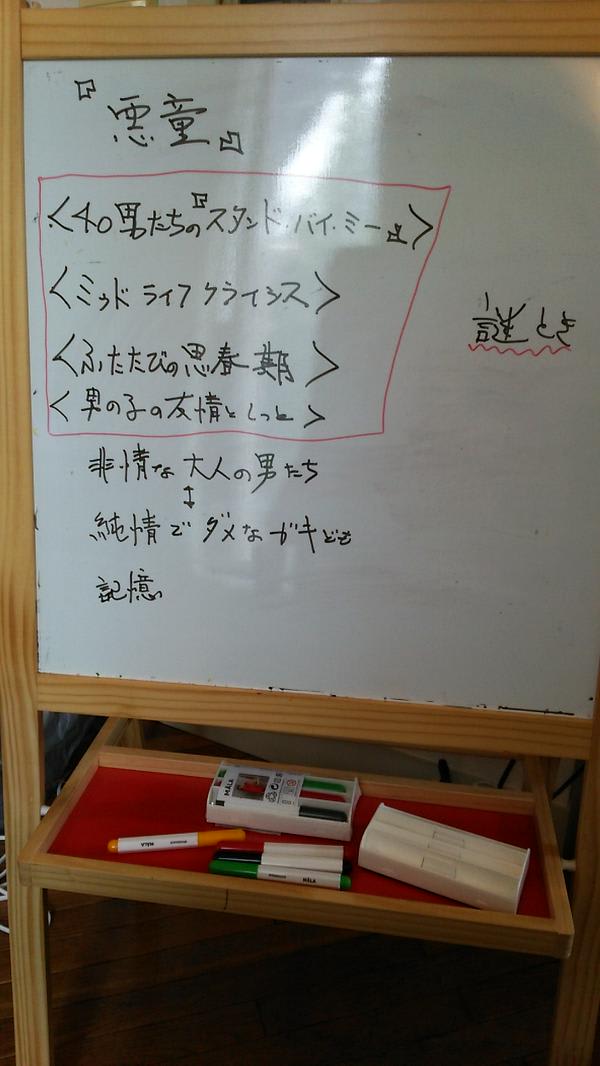 『悪童』
<40男たちの『スタンド・バイ・ミー』>
<ミッドライフクライシス>
<ふたたびの思春期>
<男の子の友情としっと>
謎とき
非情な大人の男たち
↕
純情でダメなガキども
記憶
MÅLA
MÅLA
MÅLA